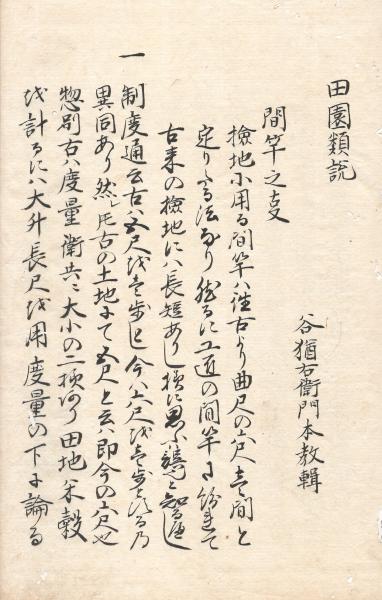 田園類説
谷猶右衛門本教輯
間竿之事
検地ニ用る間竿ハ往古より曲尺の六尺を壱間と
定りたる法なり然るに工匠の間竿に紛れて
古来の検地にハ長短ありし様に思ふ
一
制度通云古ハ五尺を壱歩とし今ハ六尺を壱歩とす
異同あり然レ𪜈古の土地にて五尺と云ハ即今の六尺也
惣別古ハ度量衡共ニ大小の二様あり田地米穀
を計るにハ大升長尺を用度量の下に論る